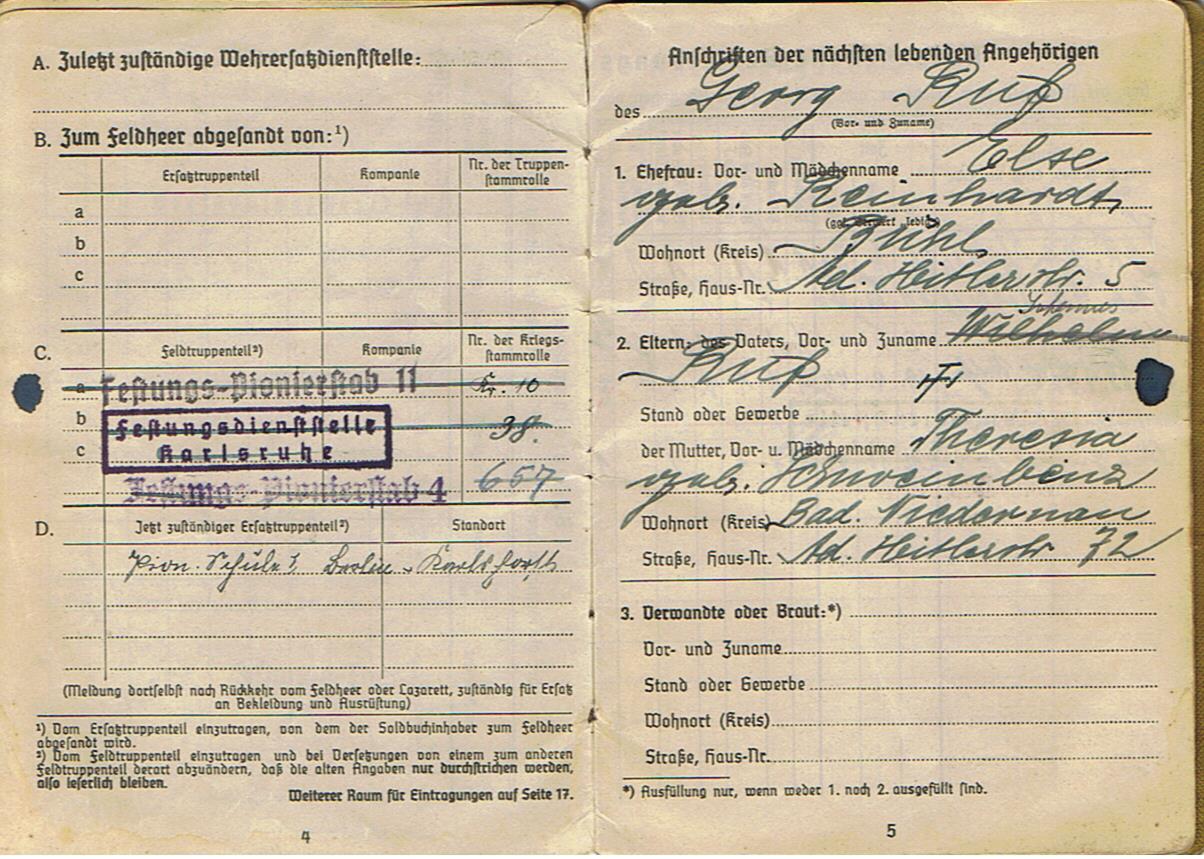 A. Zuletzt zuständige Wehrersatzdienststelle:
B. Zum Feldheer abgesandt von:¹)
Ersatztruppenteil Kompanie Nr. der Truppen-
stammrolle
a
b
c
C. Feldtruppenteil²) Kompanie Nr. der Kriegs-
stammrolle
a Festungs-Pionierstab 11 Kr. 10
b Festungsdienststelle 38.
c Karlsruhe
Festungs-Pionierstab 4 657
D. Jetzt zuständiger Ersatztruppenteil²) Standort
Pion. Schule 1, Berlin - Karlshorst
(Meldung dortselbst nach Rückkehr vom Feldheer oder Lazarett, zuständig für Ersatz
an Bekleidung und Ausrüstung)
¹) Vom Ersatztruppenteil einzutragen, von dem der Soldbuchinhaber zum Feldheer
abgesandt wird.
²) Vom Feldtruppenteil einzutragen und bei Versetzungen von einem zum anderen
Feldtruppenteil derart abzuändern, daß die alten Angaben nur durchstrichen werden,
also leserlich bleiben.
Weiterer Raum für Eintragungen auf Seite 17.
4
Anschriften der nächsten lebenden Angehörigen
des Georg Ruf
(Vor- und Zuname)
1. Ehefrau: Vor- und Mädchenname Else
geb. Reinhardt
(ggf. Vermerk „ledig“)
Wohnort (Kreis) Bühl
Straße, Haus-Nr. Ad. Hitlerstr. 5
Johannes
2. Eltern: des Vaters, Vor- und Zuname Wilhelm
Ruf
Stand oder Gewerbe
der Mutter, Vor- u. Mädchenname Theresia
geb. Schweinbenz
Wohnort (Kreis) Bad. Niedernau
Straße, Haus-Nr. Ad. Hitlerstr 72
3. Verwandte oder Braut:*)
Vor- und Zuname
Stand oder Gewerbe
Wohnort (Kreis)
Straße, Haus-Nr.
*) Ausfüllung nur, wenn weder 1. noch 2. ausgefüllt sind.
5